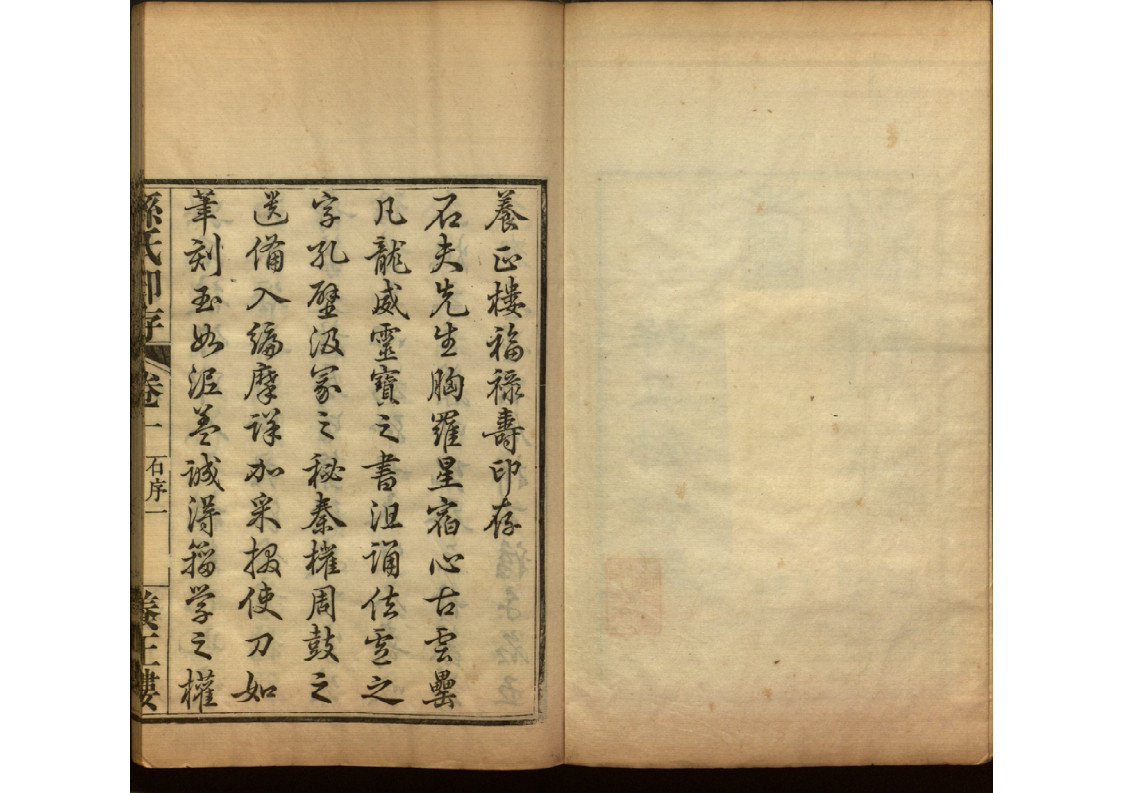 養正樓福祿壽印存
石夫先生胸羅星宿心古雲罍
凡龍威靈寶之書沮誦佉盧之
字孔壁汲冢之秘秦權周鼓之
遺備入編摩詳加采掇使刀如
筆刻玉如泥蓋誠得籀學之權
孫氏印存
卷一
石序一
養正樓